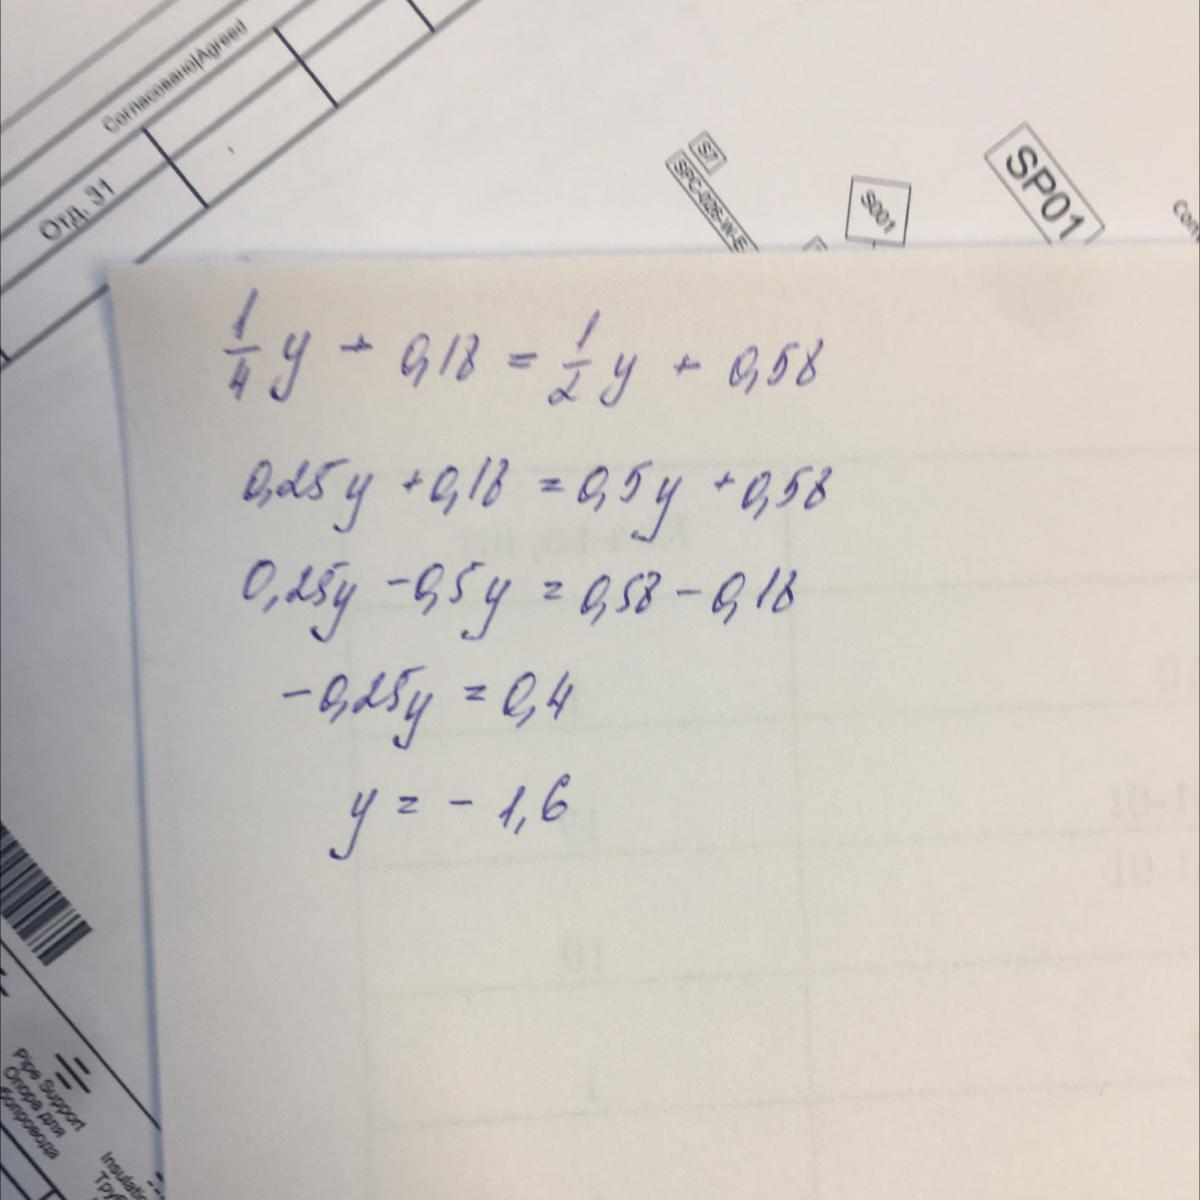 Согласовано|Agreed
Отд. 31
S7
SPC-026-W-E
S001
SP01
1/4 y + 0,18 = 1/2 y + 0,58
0,25y + 0,18 = 0,5y + 0,58
0,25y - 0,5y = 0,58 - 0,18
-0,25y = 0,4
y = - 1,6
Pipe Support
Опора для